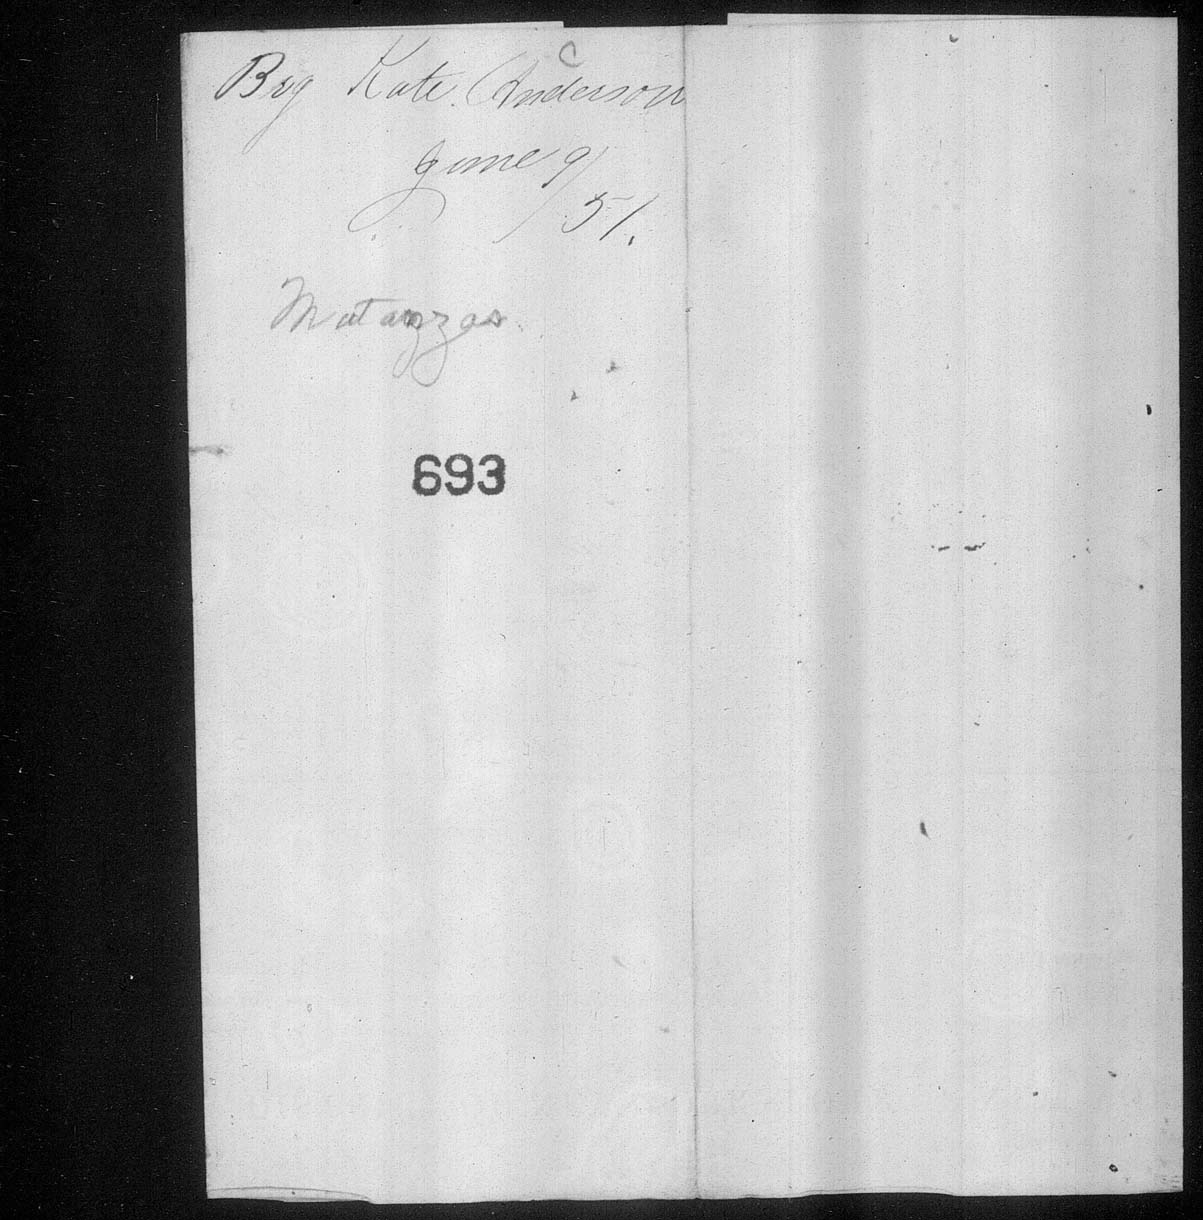 Brg Kate Anderson
June 9/51.
Matanzas
693